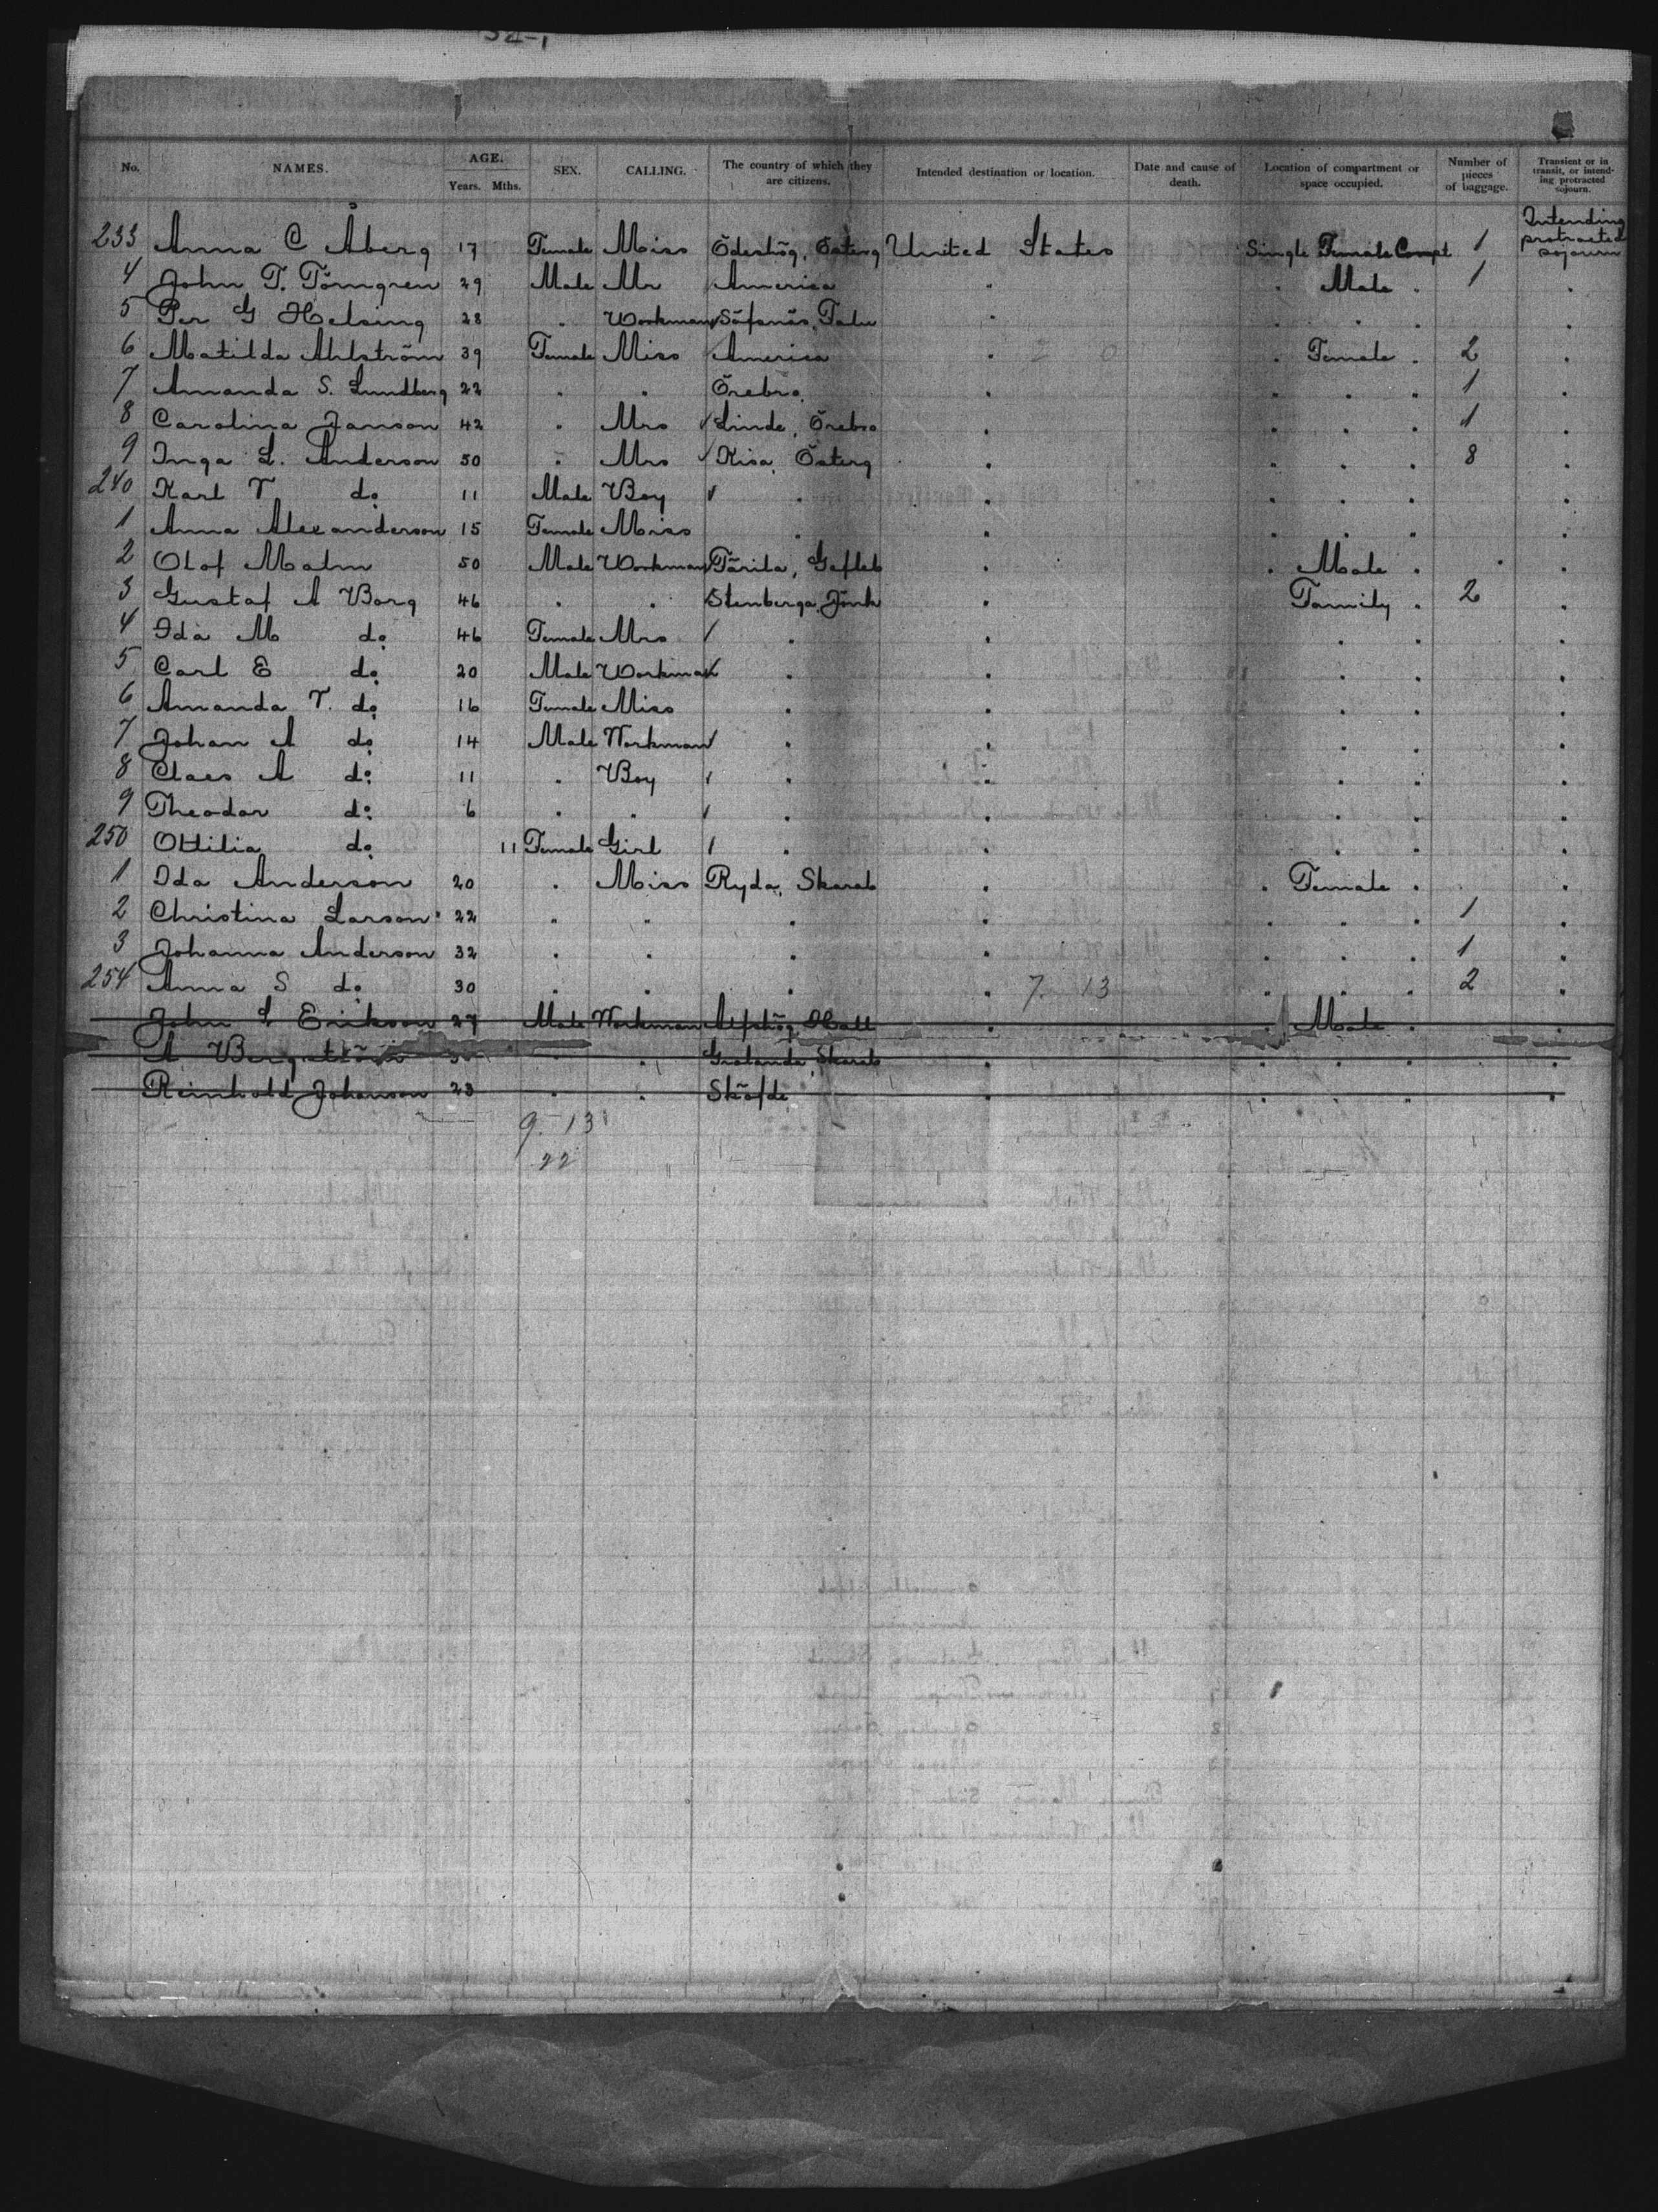 No. NAMES. AGE. Years. Mths. SEX. CALLING. The country of which they are citizens. Intended destination or location. Date and cause of death. Location of compartment or space occupied. Number of pieces of baggage. Transient or in transit, or intending protracted sojourn.
233 Anna C Åberg 17 Female Miss Ödeshög, Österg United States Single Female Compt 1 Intending protracted sojourn
4 John T. Törngren 29 Male Mr America " " Male " 1 "
5 Per G Helsing 28 " Workman Säfsnäs, Falu " " " " "
6 Matilda Ahlström 39 Female Miss America " 2 0 " Female " 2 "
7 Amanda S. Lundberg 22 " " Örebro " " " " 1 "
8 Carolina Janson 42 " Mrs Linde, Örebro " " " " 1 "
9 Inga L. Anderson 50 " Mrs Kisa, Österg " " " " 8 "
240 Karl T do 11 Male Boy " " " " " "
1 Anna Alexanderson 15 Female Miss " " " " " "
2 Olof Malm 50 Male Workman Färila, Gefleb " " Male " " "
3 Gustaf A Borg 46 " " Stenberga, Jönk " Family " 2 "
4 Ida M do 46 Female Mrs " " " " "
5 Carl E do 20 Male Workman " " " " "
6 Amanda T. do 16 Female Miss " " " " "
7 Johan A do 14 Male Workman " " " " "
8 Claes A do 11 " Boy " " " " "
9 Theodor do 6 " " " " " " "
250 Ottilia do 11 Female Girl " " " " "
1 Ida Anderson 20 " Miss Ryda, Skarab " " Female " "
2 Christina Larson 22 " " " " " " " 1 "
3 Johanna Anderson 32 " " " " " " " 1 "
254 Anna S do 30 " " " " 7. 13 " " " 2 "
John L Erikson 27 Male Workman Hall " Male " "
A Bergström " " Grolanda, Skarab " " " " " "
Reinhold Johanson 23 " " Sköfde " " " " " "
9. 13
22